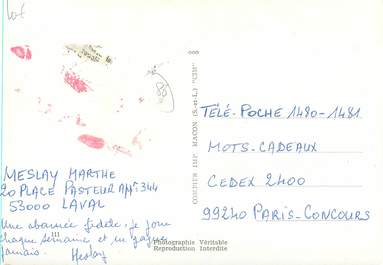 MESLAY MARTHE
20 PLACE PASTEUR APt 344
53000 LAVAL
Une abonnée fidèle, je joue
chaque semaine et ne gagne
jamais. Meslay
COMBIER IMP. MACON (S.-et-L.) "CIM"
Photographie Véritable
Reproduction Interdite
TÉLÉ-POCHE 1480-1481
MOTS-CADEAUX
CEDEX 2400
99240 PARIS-CONCOURS